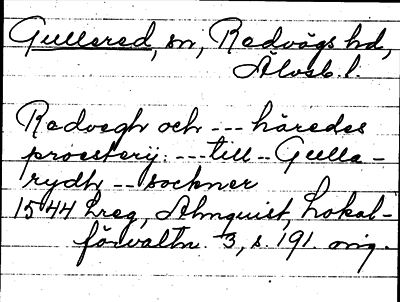 Gullered, sn, Redvägs hd,
Älvsb. l.
Redvegh och --- häredes
proesterij. --- till -- Gulla-
rydh -- sockner
1544 Lreg, Almquist, Lokal-
förvaltn. 3, s. 191. orig.